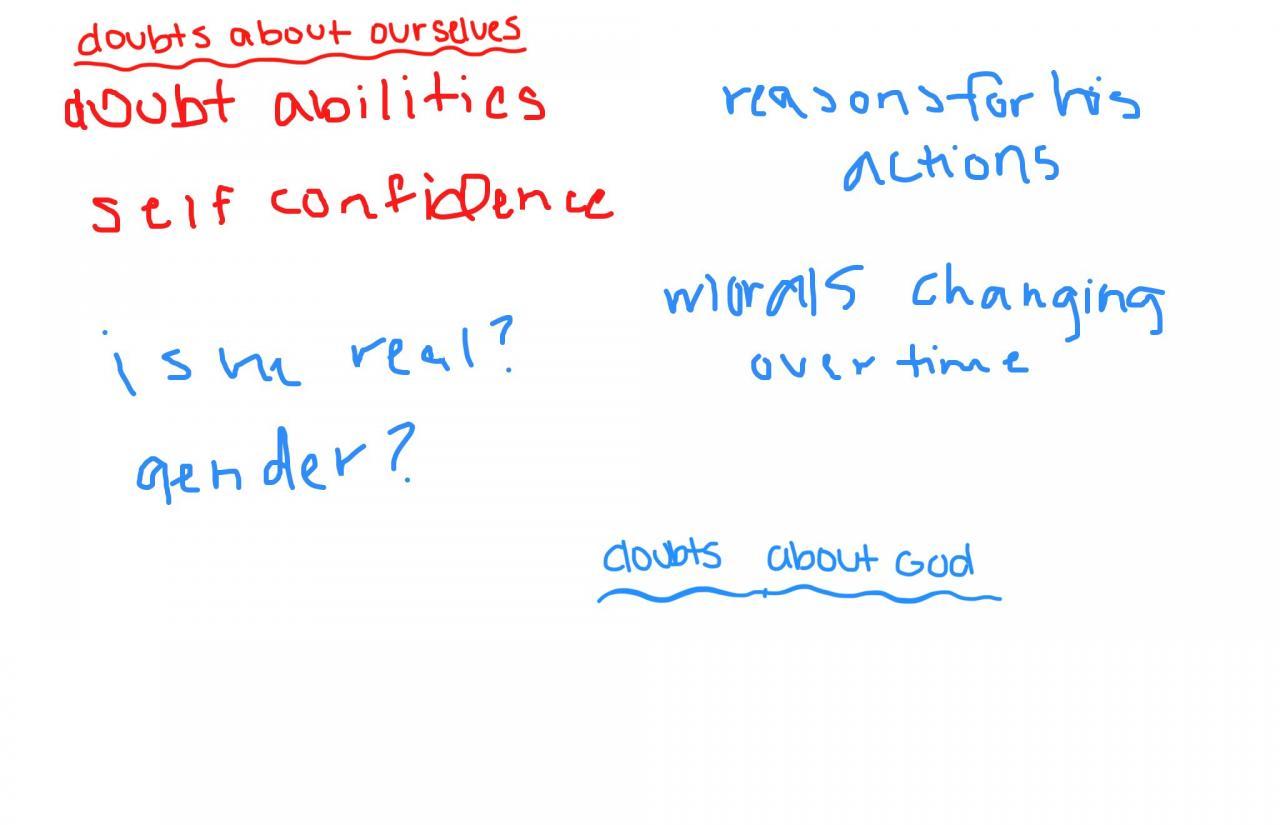 doubts about ourselves
doubt abilities
self confidence
is he real?
gender?
reasons for his
actions
morals changing
over time
doubts about God